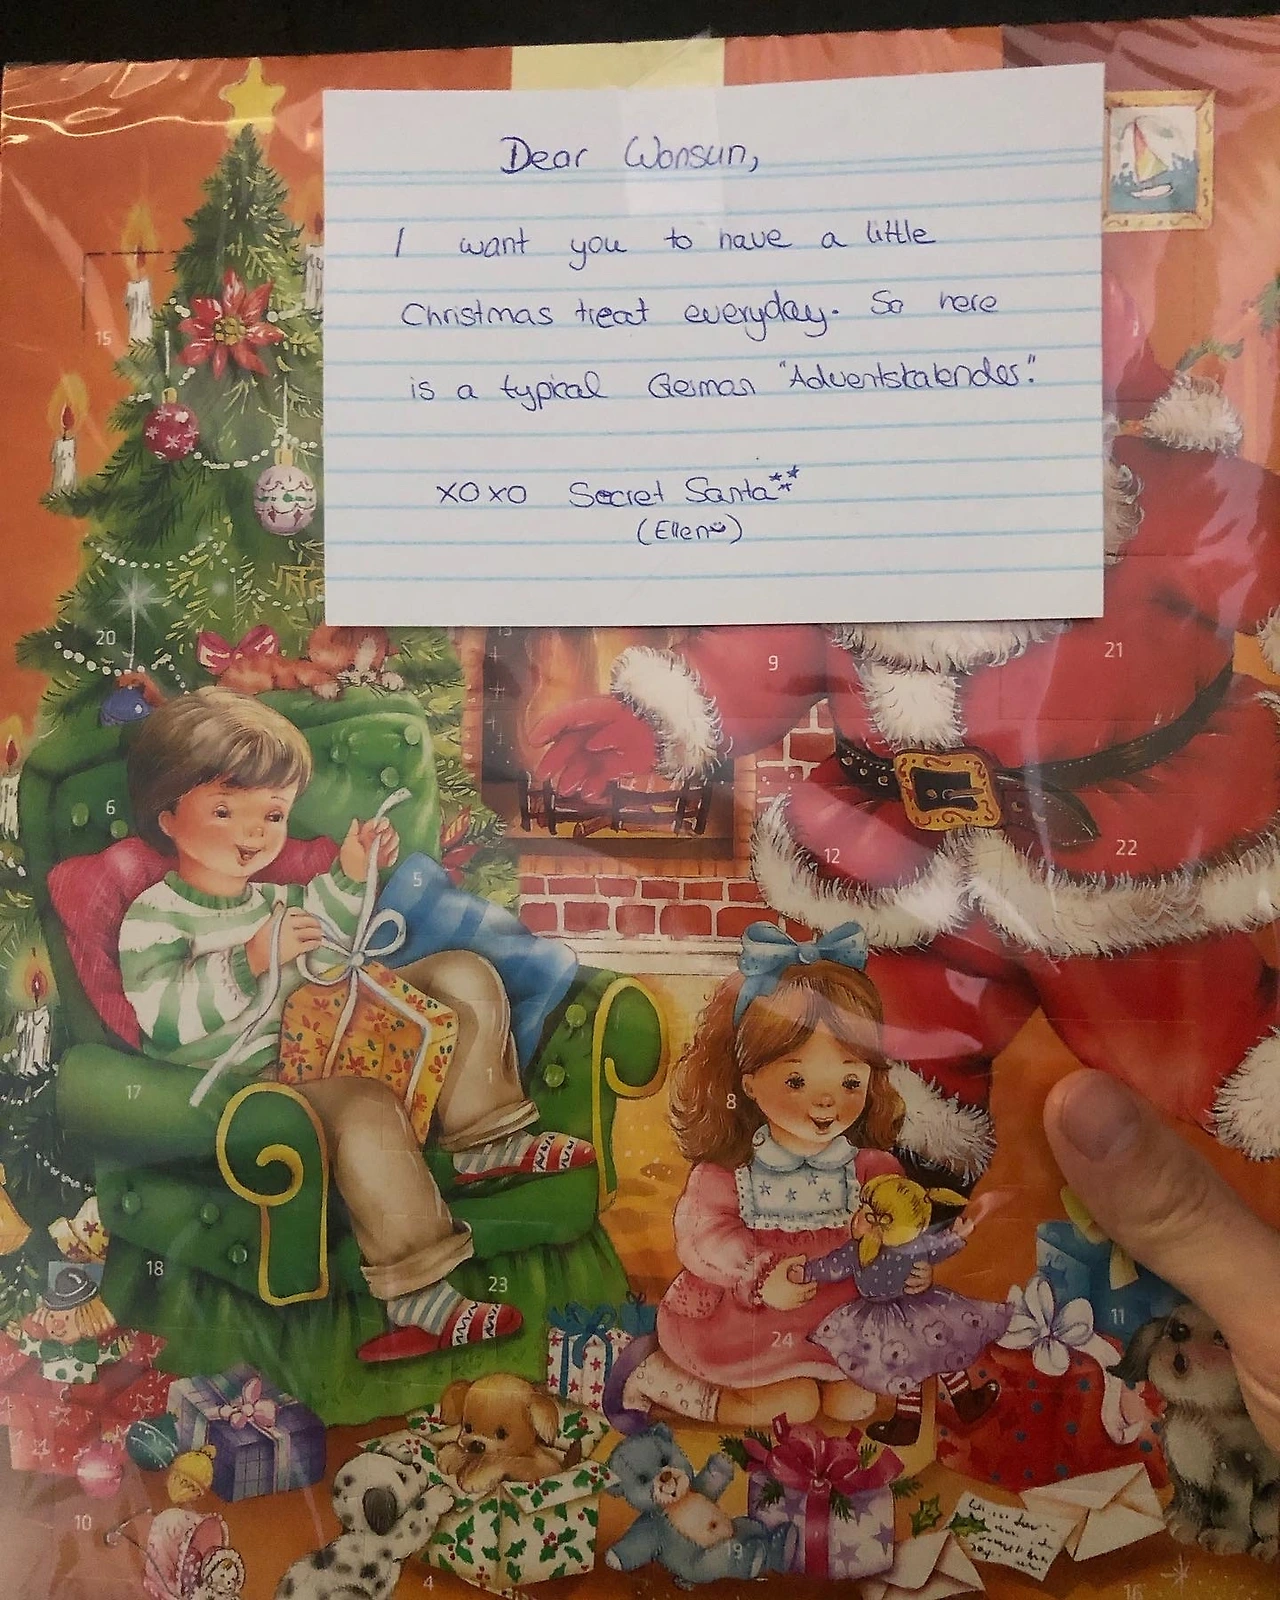 Dear Wonsun,
I want you to have a little
Christmas treat everyday. So here
is a typical German "Adventskalender."
XOXO Secret Santa
(Ellen)
15
20
9
21
6
12
22
5
17
1
8
18
23
24
11
10
19
4
16